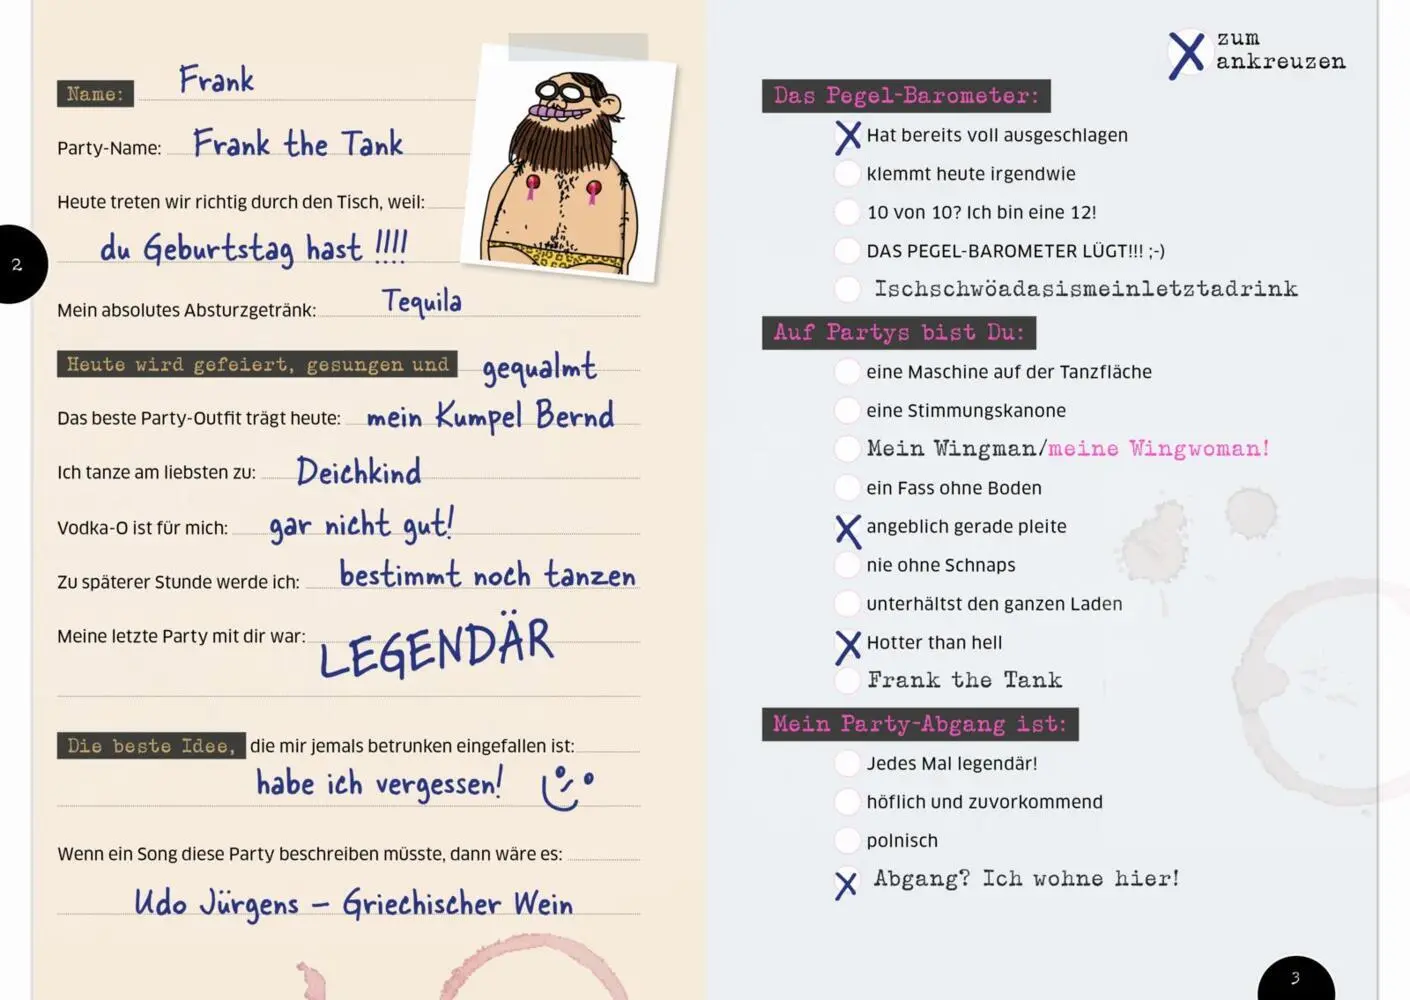 Name: Frank
Party-Name: Frank the Tank
Heute treten wir richtig durch den Tisch, weil:
du Geburtstag hast !!!!
Mein absolutes Absturzgetränk: Tequila
Heute wird gefeiert, gesungen und gequalmt
Das beste Party-Outfit trägt heute: mein Kumpel Bernd
Ich tanze am liebsten zu: Deichkind
Vodka-O ist für mich: gar nicht gut!
Zu späterer Stunde werde ich: bestimmt noch tanzen
Meine letzte Party mit dir war: LEGENDÄR
Die beste Idee, die mir jemals betrunken eingefallen ist:
habe ich vergessen!
Wenn ein Song diese Party beschreiben müsste, dann wäre es:
Udo Jürgens – Griechischer Wein
2
zum
ankreuzen
Das Pegel-Barometer:
Hat bereits voll ausgeschlagen
klemmt heute irgendwie
10 von 10? Ich bin eine 12!
DAS PEGEL-BAROMETER LÜGT!!! ;-)
Ischschwöadasismeinletztadrink
Auf Partys bist Du:
eine Maschine auf der Tanzfläche
eine Stimmungskanone
Mein Wingman/meine Wingwoman!
ein Fass ohne Boden
angeblich gerade pleite
nie ohne Schnaps
unterhältst den ganzen Laden
Hotter than hell
Frank the Tank
Mein Party-Abgang ist:
Jedes Mal legendär!
höflich und zuvorkommend
polnisch
Abgang? Ich wohne hier!
3